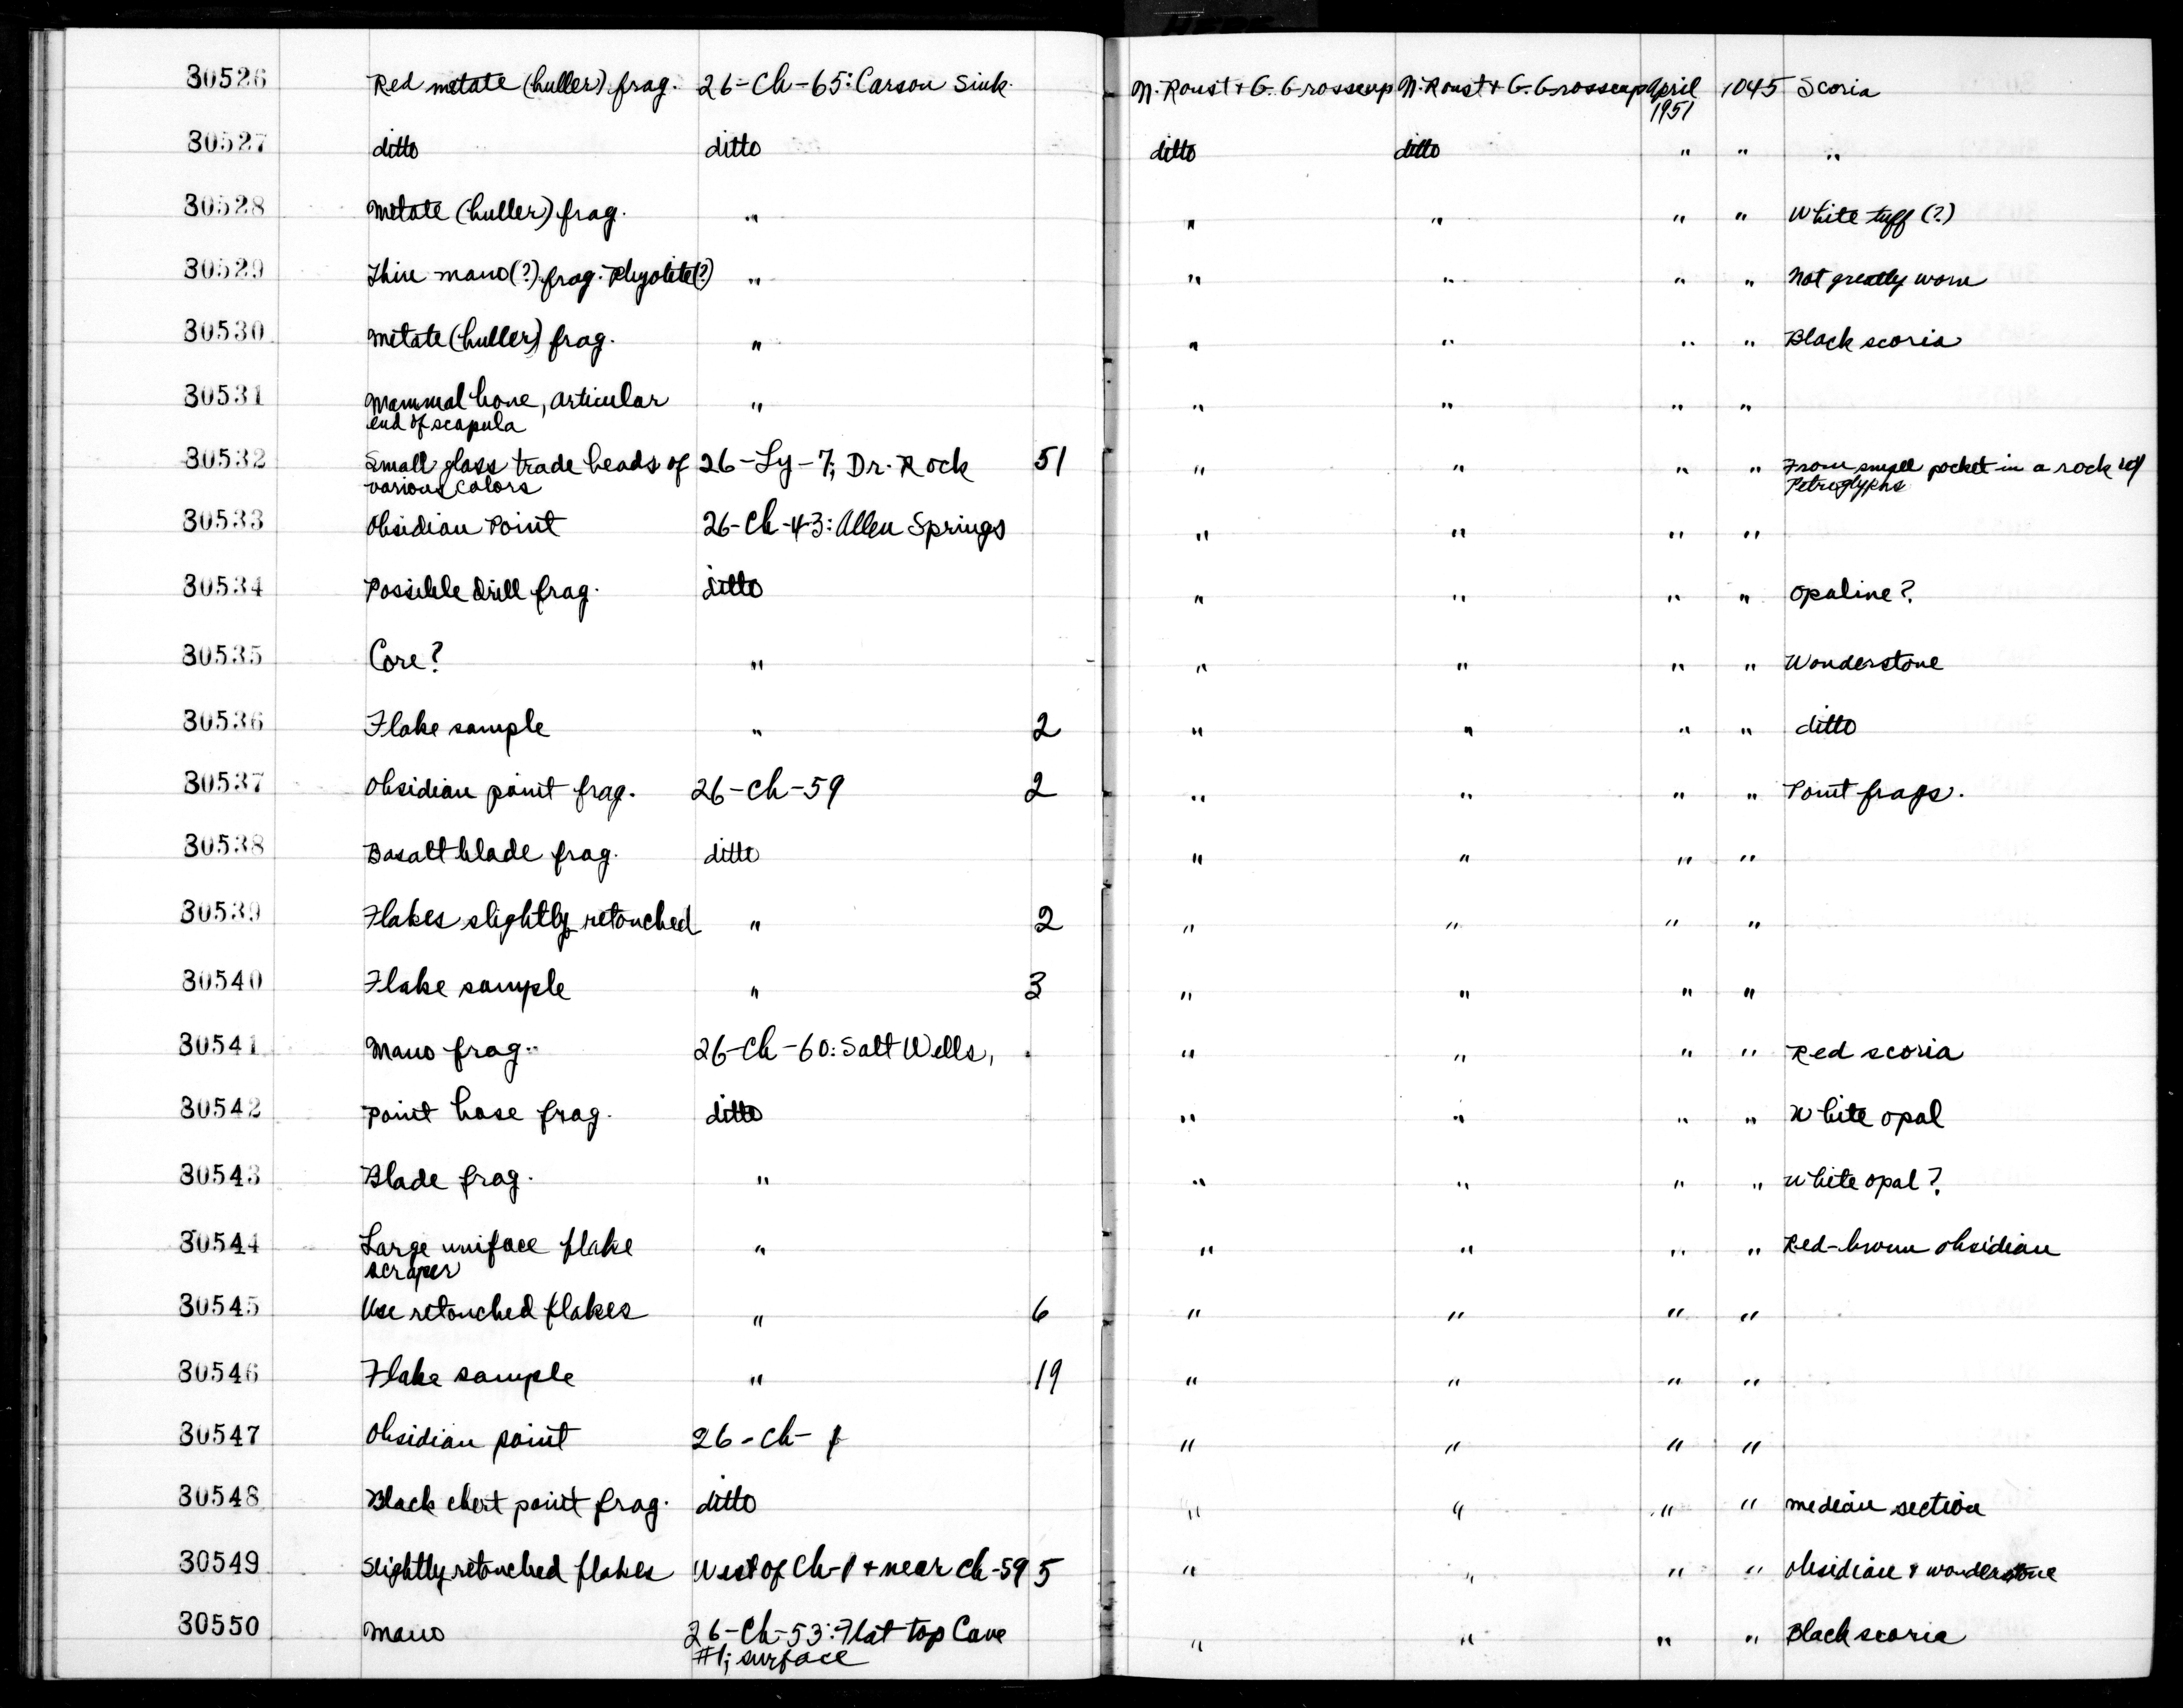 30526 Red metate (huller) frag. 26-Ch-65: Carson Sink. N. Roust + G. Grosscup N. Roust + G. Grosscup April 1045 Scoria
1951
30527 ditto ditto ditto ditto " " "
30528 Metate (huller) frag. " " " " " White tuff (?)
30529 Thin mano(?) frag. Rhyolite(?) " " " " " Not greatly worn
30530 Metate (huller) frag. " " " " " Black scoria
30531 Mammal bone, articular " " " " "
end of scapula
30532 Small glass trade beads of 26-Ly-7; Dr. Rock 51 " " " " From small pocket in a rock w/
various colors Petroglyphs
30533 Obsidian Point 26-Ch-43: Allen Springs " " " "
30534 Possible drill frag. ditto " " " " Opaline?
30535 Core? " " " " " Wonderstone
30536 Flake sample " 2 " " " " ditto
30537 Obsidian point frag. 26-Ch-59 2 " " " " Point frags.
30538 Basalt blade frag. ditto " " " "
30539 Flakes slightly retouched " 2 " " " "
30540 Flake sample " 3 " " " "
30541 Mano frag. 26-Ch-60: Salt Wells, " " " " Red scoria
30542 Point base frag. ditto " " " " White opal
30543 Blade frag. " " " " " White opal?
30544 Large uniface flake " " " " " Red-brown obsidian
scraper
30545 Use retouched flakes " 6 " " " "
30546 Flake sample " 19 " " " "
30547 Obsidian point 26-Ch-1 " " " "
30548 Black chert point frag. ditto " " " " median section
30549 Slightly retouched flakes West of Ch-1 + near Ch-59 5 " " " " Obsidian & wonderstone
30550 Mano 26-Ch-53: Flat top Cave " " " " Black scoria
#1; surface